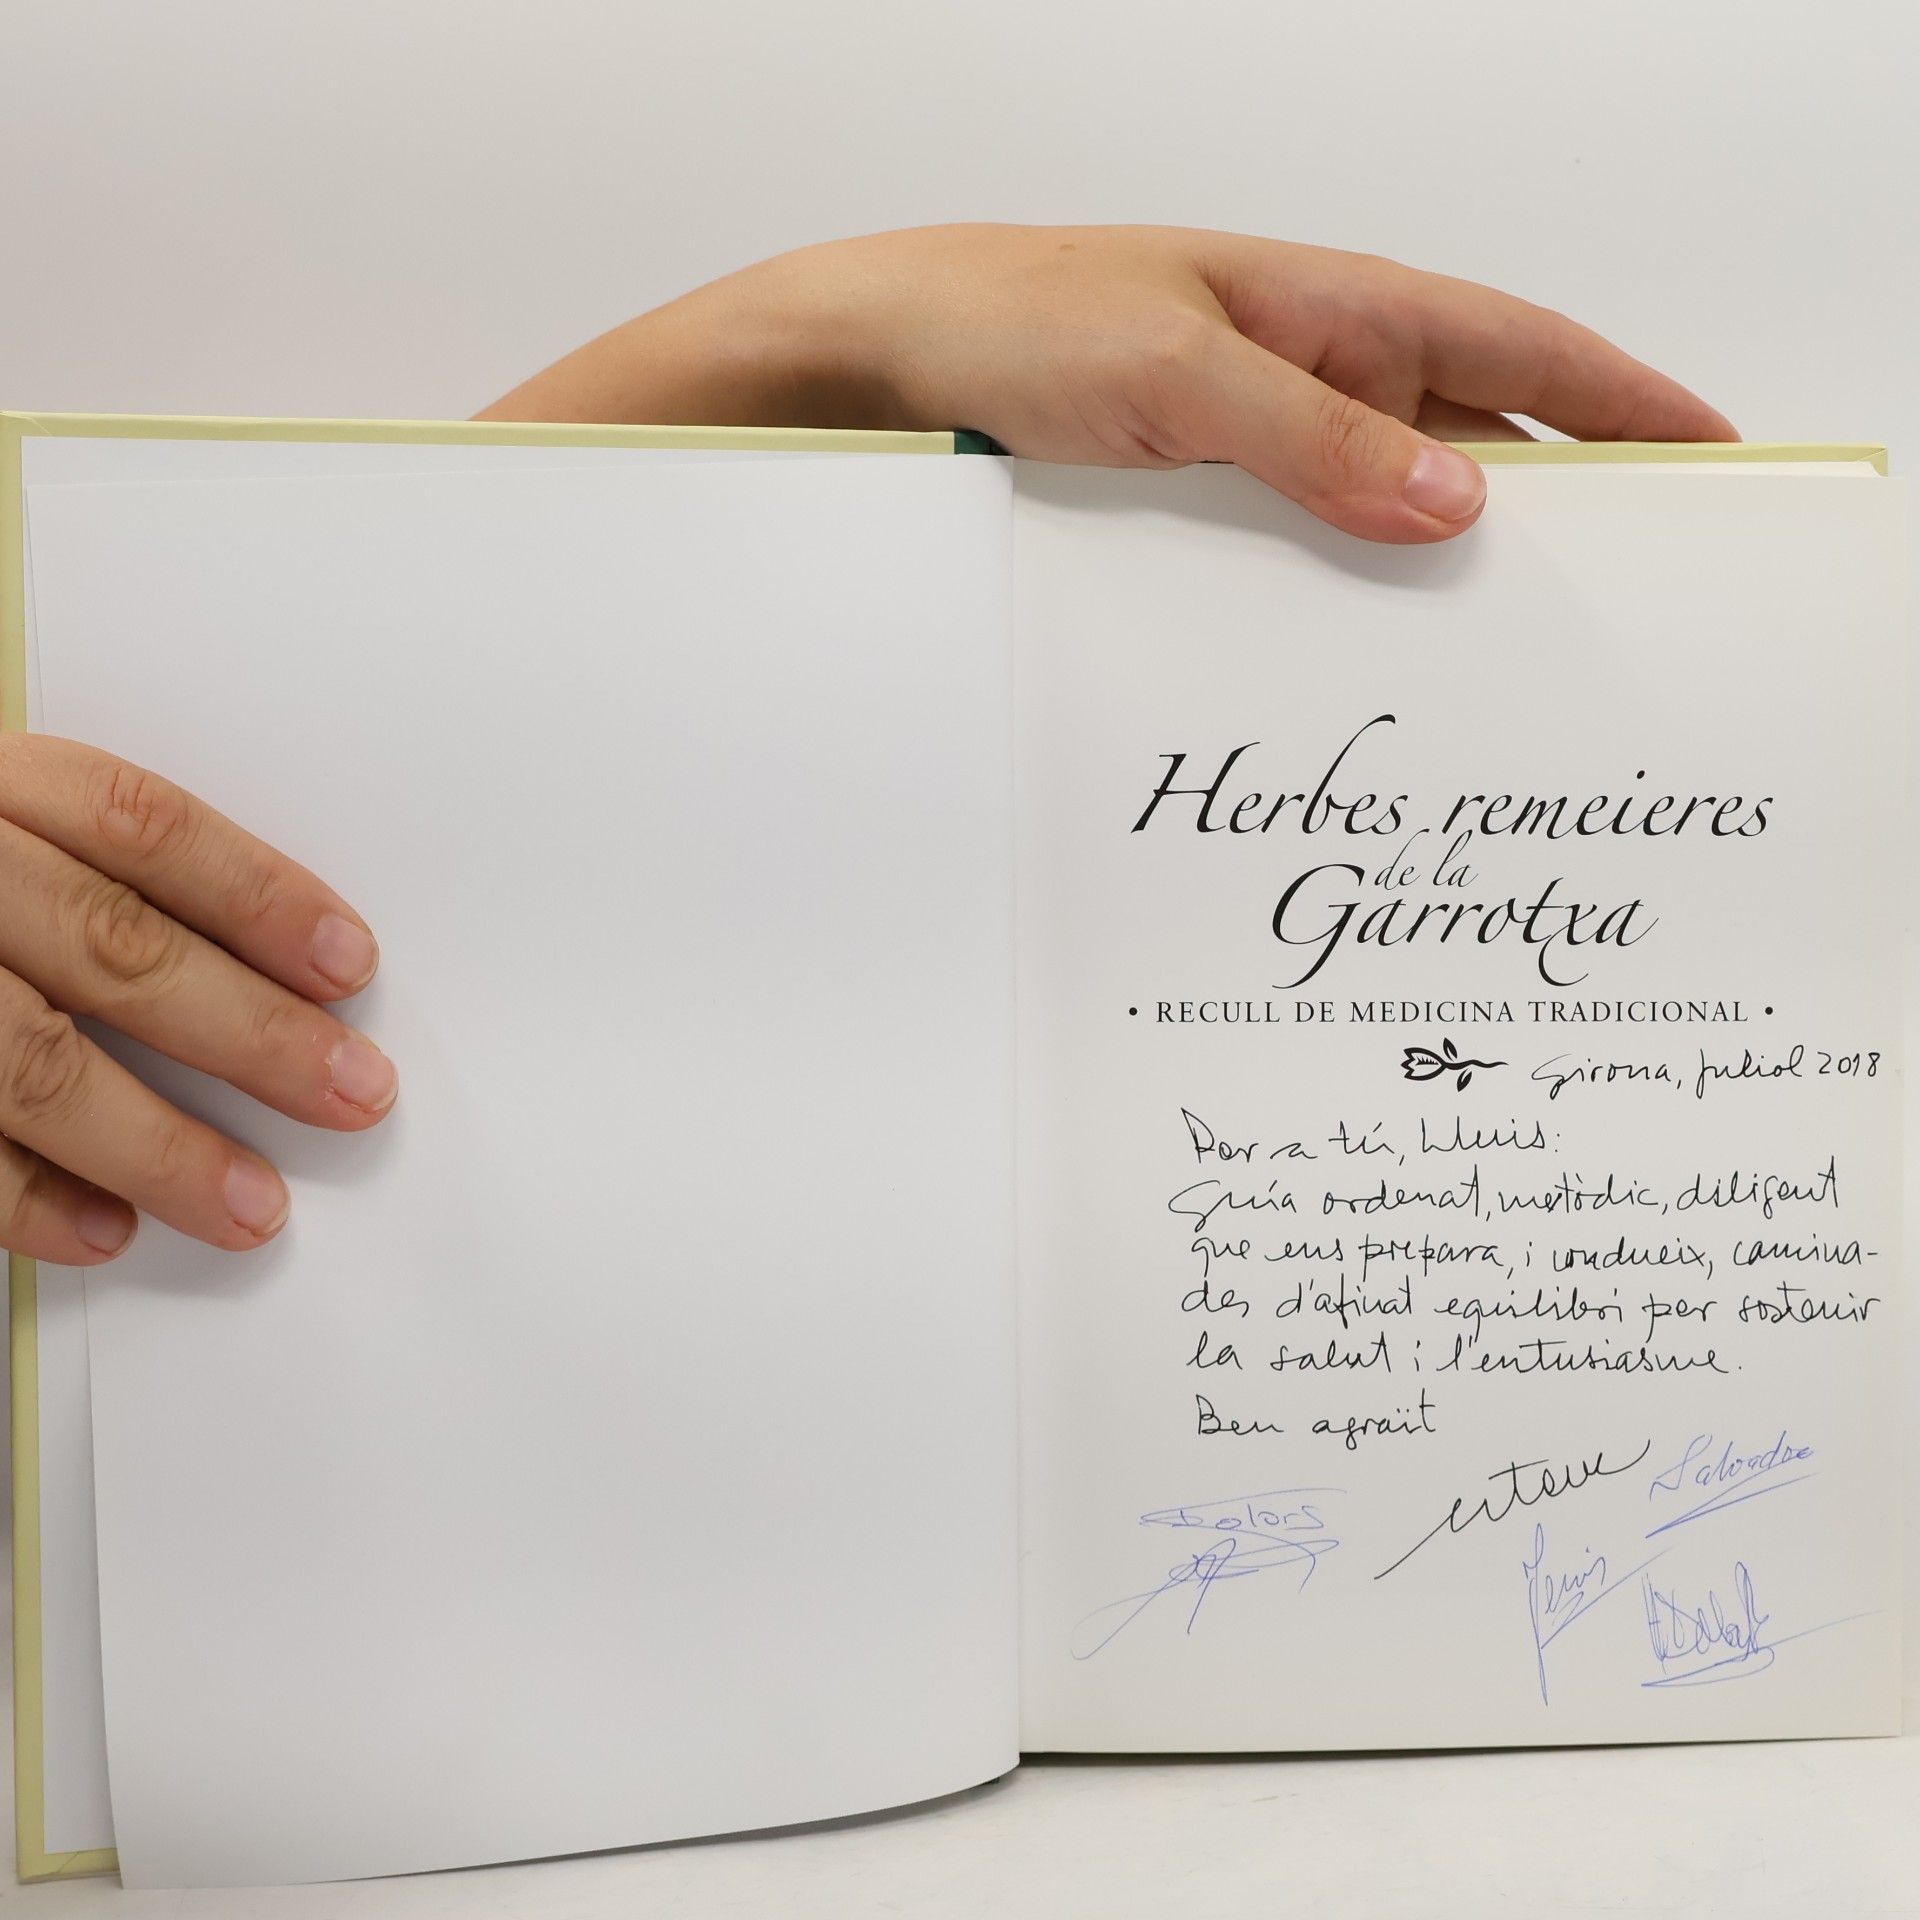 Herbes remeieres
de la
Garrotxa
• RECULL DE MEDICINA TRADICIONAL •
Girona, juliol 2018
Per a tú, Lluis:
Guía ordenat, metòdic, diligent
que ens prepara, i condueix, camina-
des d'afinat equilibri per sostenir
la salut i l'entusiasme.
Ben agraït
Salvador
Dolors